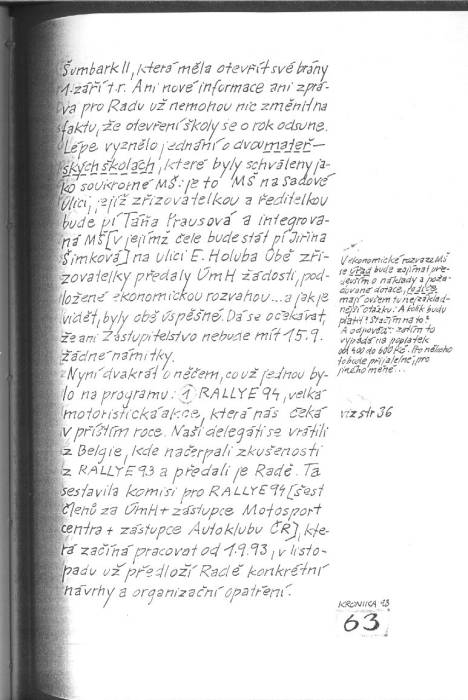 Šumbark II, která měla otevřít své brány
1. září t.r. Ani nové informace ani zprá-
va pro Radu už nemohou nic změnit na
faktu, že otevření školy se o rok odsune.
Lépe vyznělo jednání o dvou mateř-
ských školách, které byly schváleny ja-
ko soukromé MŠ: je to MŠ na Sadové
ulici, jejíž zřizovatelkou a ředitelkou
bude pí Táňa Prausová a integrova-
ná MŠ [v jejímž čele bude stát pí Jiřina
Šimková] na ulici E. Holuba Obě zři-
zovatelky předaly ÚmH žádosti, pod-
ložené ekonomickou rozvahou... a jak je
vidět, byly obě úspěšné. Dá se očekávat,
že ani Zastupitelstvo nebude mít 15.9.
žádné námitky.
Nyní dvakrát o něčem, co už jednou by-
lo na programu: 1 RALLYE 94, velká
motoristická akce, která nás čeká
v příštím roce. Naši delegáti se vrátili
z Belgie, kde načerpali zkušenosti
z RALLYE 93 a předali je Radě. Ta
sestavila komisi pro RALLYE 94 [šest
členů za ÚmH + zástupce Motosport
centra + zástupce Autoklubu ČR], kte-
rá začíná pracovat od 1.9.93, v listo-
padu už předloží Radě konkrétní
návrhy a organizační opatření.
V ekonomické rozvaze MŠ
se úřad bude zajímat pře-
devším o náklady a poža-
dované dotace, rodiče
mají ovšem tu nejzáklad-
nější otázku: A kolik budu
platit? Stačím na to?
A odpověď: zatím to
vypadá na poplatek
od 400 do 600 Kč. Pro někoho
to bude přijatelné, pro
jiného méně...
viz str 36
KRONIKA 93
63